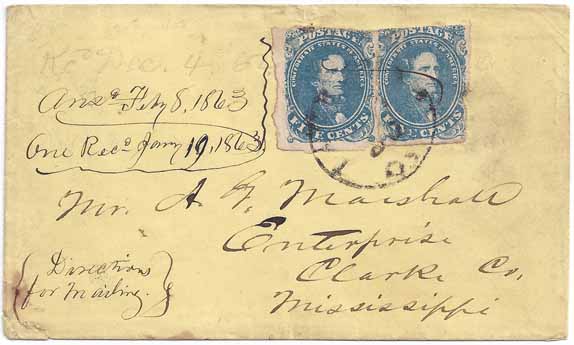 Rec Dec. 4
POSTAGE POSTAGE
CONFEDERATE STATES OF AMERICA CONFEDERATE STATES OF AMERICA
FIVE CENTS FIVE CENTS
Ansd Feby 8, 1863
One Recd Jany 19, 1863
Mr. A. Y. Marshall
Enterprise
Clarke Co,
Mississippi
Directions
for Mailing.